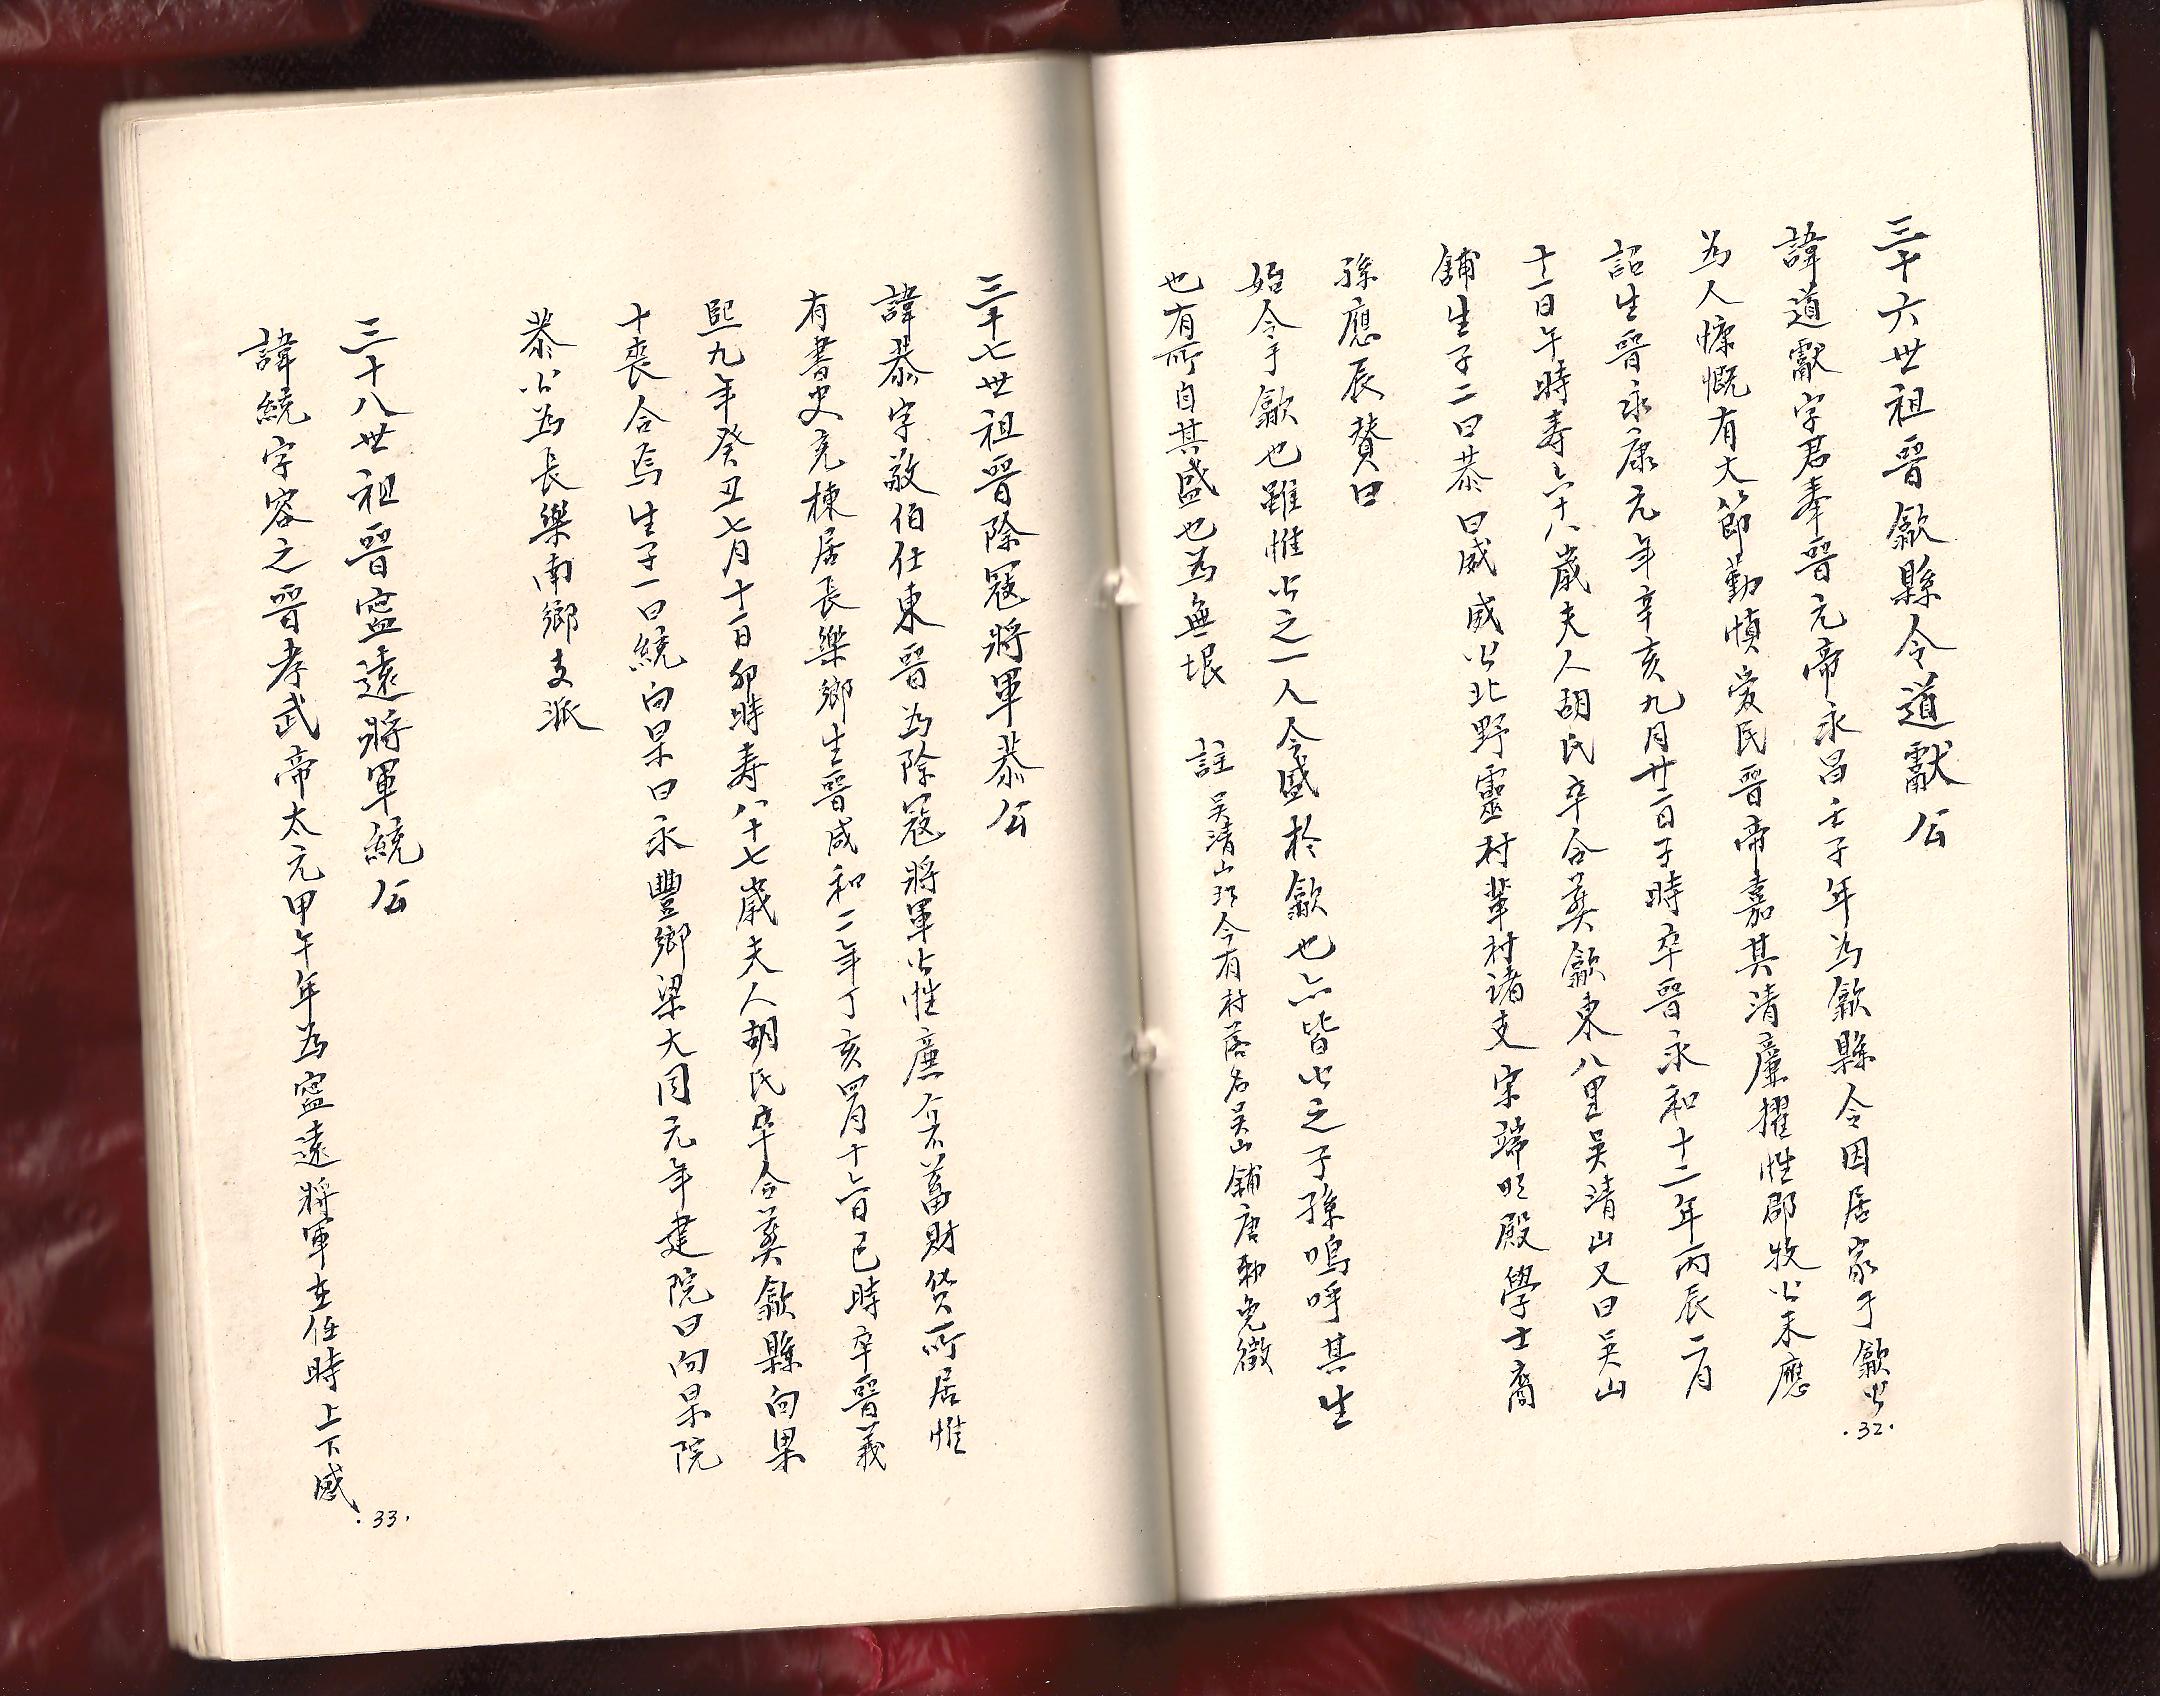 三十六世祖晉歙縣令道獻公
諱道獻字君奉晉元帝永昌壬子年為歙縣令因居家于歙公
為人慷慨有大節勤慎愛民晉帝嘉其清廉擢性郡牧公未應
詔生晉永康元年辛亥九月廿二日子時卒晉永和十二年丙辰二月
十一日午時寿六十八歲夫人胡氏卒合葬歙東八里吳清山又曰吳山
舖生子二曰恭曰咸咸公北野靈村輩村諸支宋端明殿學士裔
孫應辰贊曰
始令于歙也雖惟公之一人今盛於歙也亦皆公之子孫嗚呼其生
也有所自其盛也為無垠 註吳清山現今有村落名吳山舖唐勅免徵
·32·
三十七世祖晉除寇將軍恭公
諱恭字敬伯仕東晉為除寇將軍公性廉介不蓄財貨所居惟
有書史充棟居長樂鄉生晉咸和二年丁亥四月十六日巳時卒晉義
熙九年癸丑七月十一日卯時寿八十七歲夫人胡氏卒合葬歙縣向杲院
十喪合焉生子一曰繞向杲曰永豐鄉梁大同元年建院曰向杲院
恭公為長樂南鄉支派
三十八世祖晉寧遠將軍繞公
諱繞字容之晉孝武帝太元甲午年為寧遠將軍在任時上下感
·33·